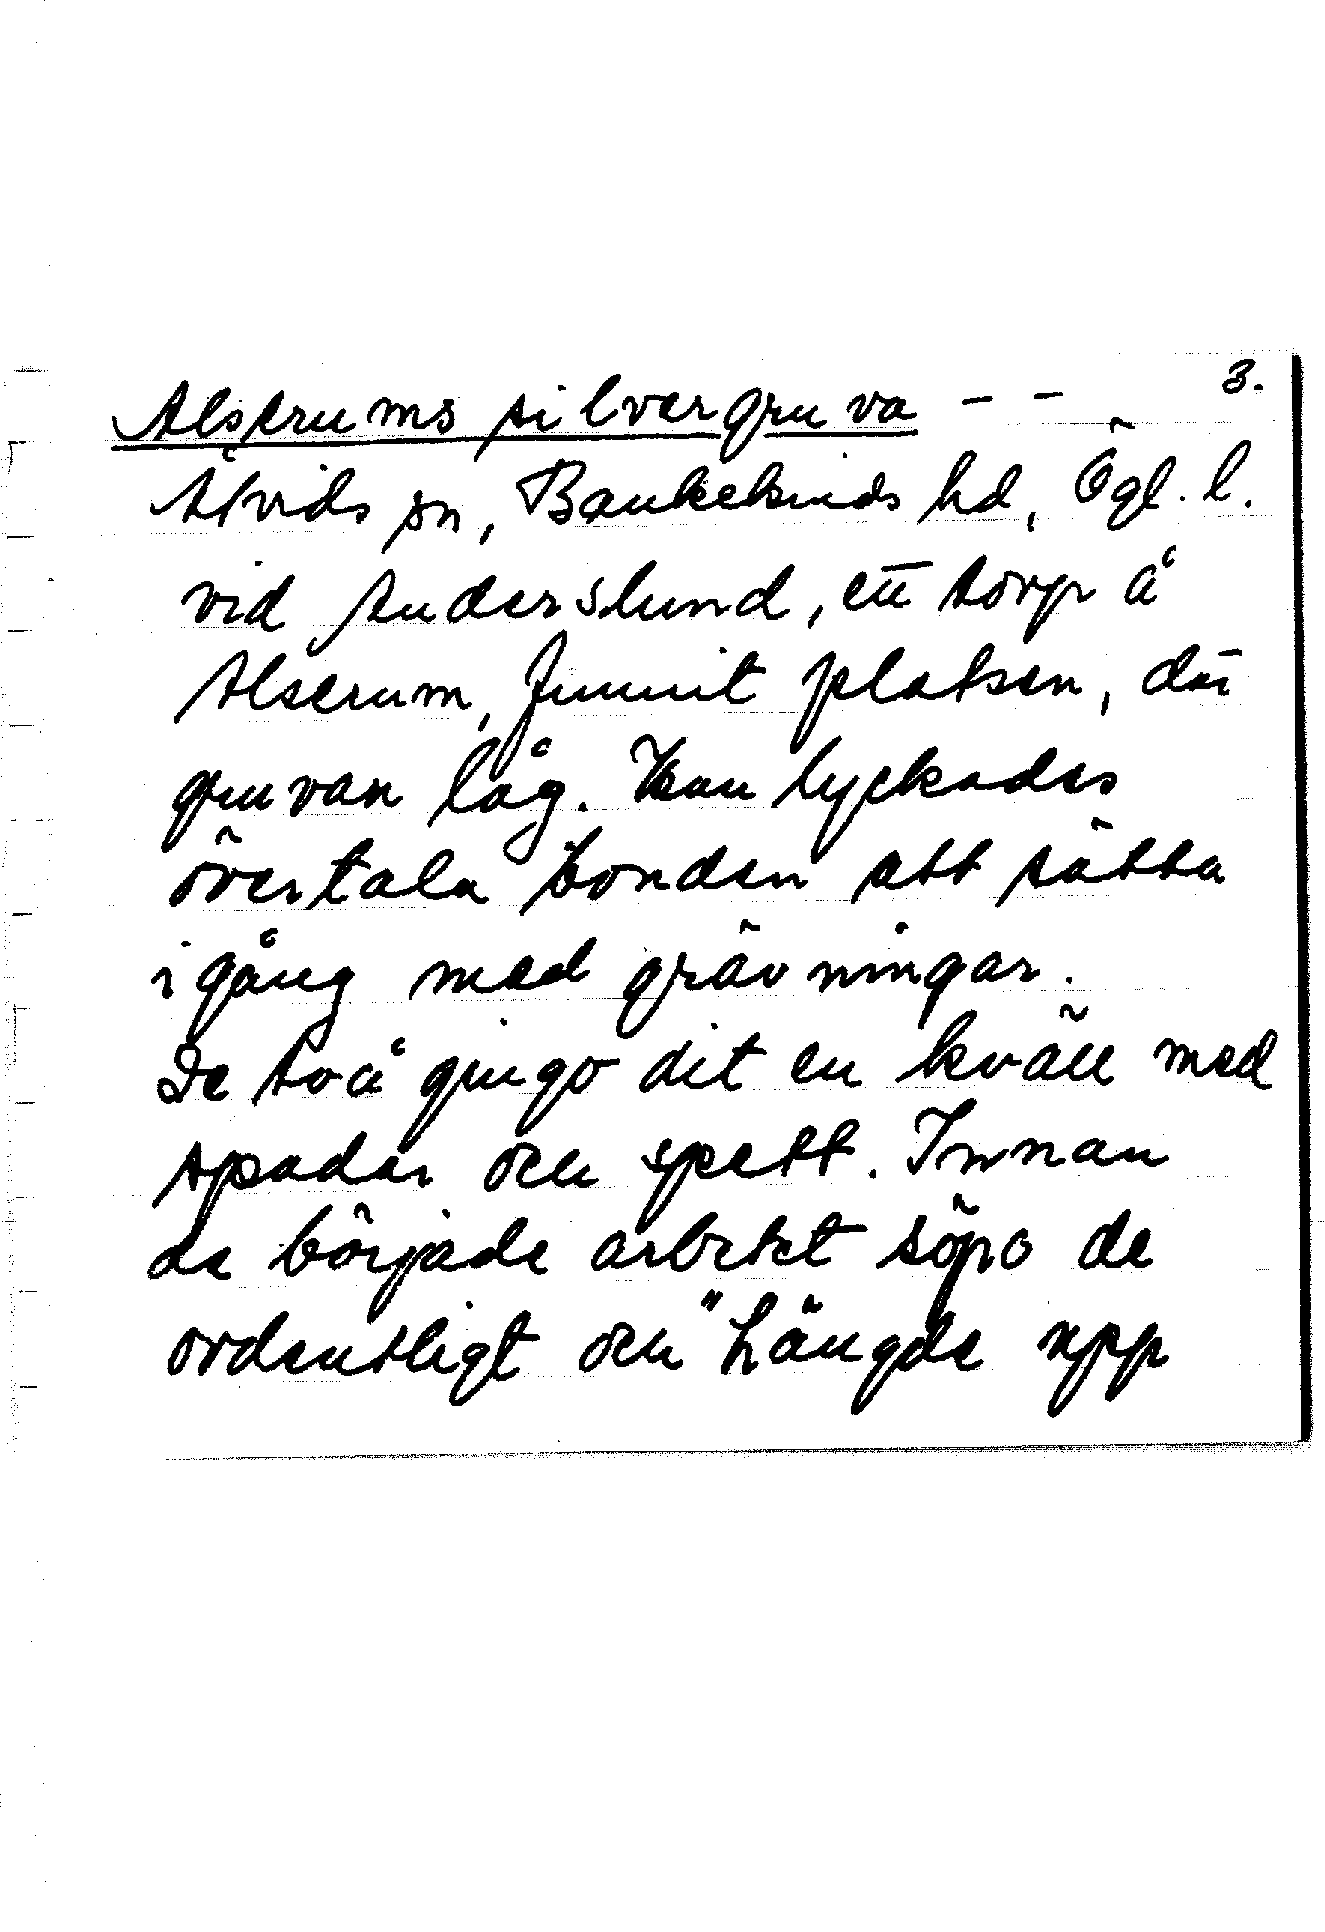 Alserums silvergruva – – 3.
Åtvids sn, Bankekinds hd, Ögl. l.
vid Anderslund, ett torp å
Alserum, funnit platsen, där
gruvan låg. Han lyckades
övertala bonden att sätta
igång med grävningar.
De två gingo dit en kväll med
spadar och spett. Innan
de började arbetet söpo de
ordentligt och "hängde upp